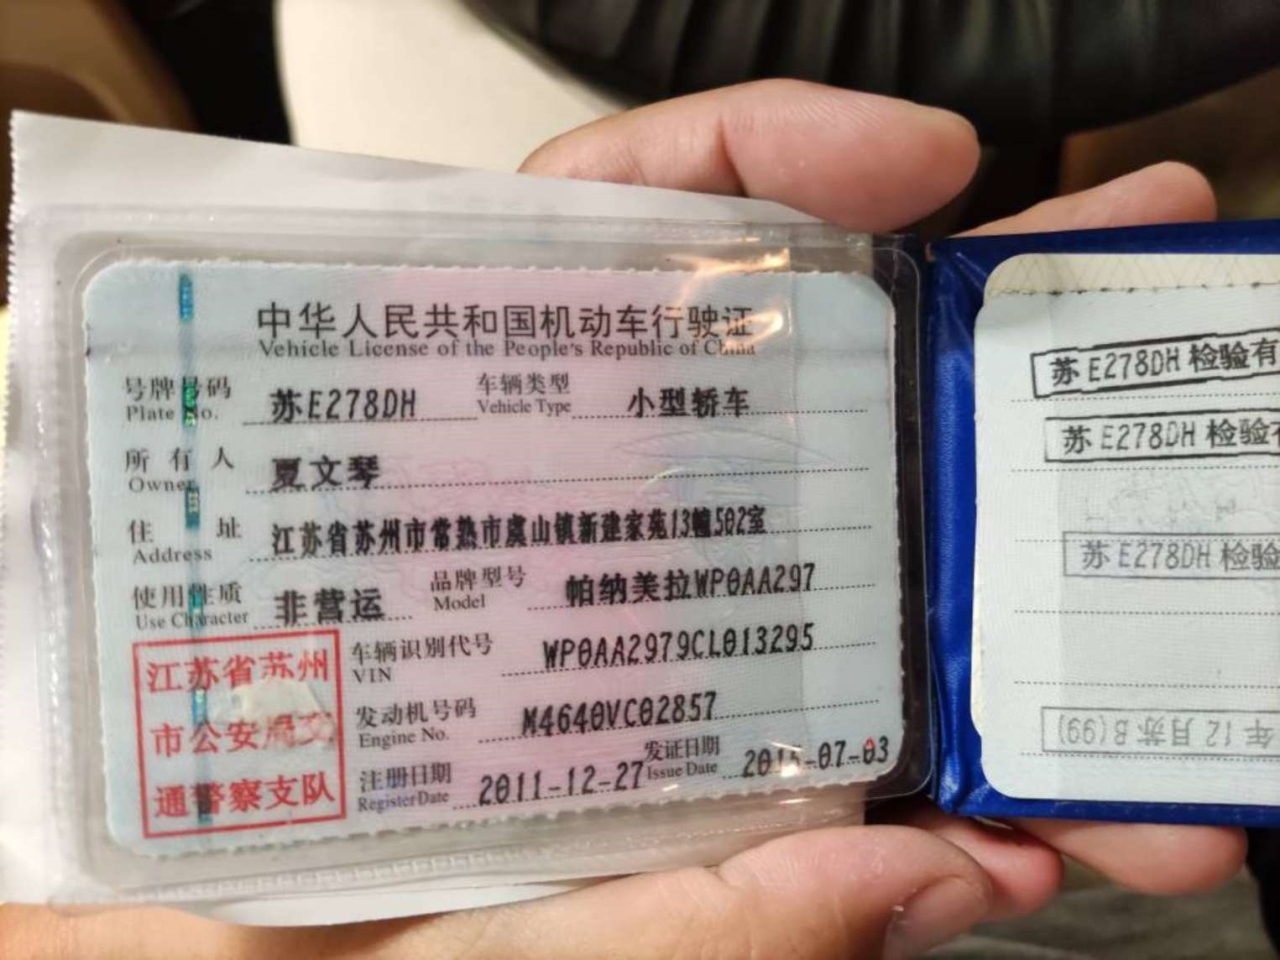 中华人民共和国机动车行驶证
Vehicle License of the People's Republic of China
号牌号码 苏E278DH 车辆类型 小型轿车
Plate No. Vehicle Type
所有人 夏文琴
Owner
住址 江苏省苏州市常熟市虞山镇新建家苑13幢502室
Address
使用性质 非营运 品牌型号 帕纳美拉WP0AA297
Use Character Model
车辆识别代号 WP0AA2979CL013295
VIN
发动机号码 M4640VC02857
Engine No.
注册日期 2011-12-27 发证日期 2015-07-03
Register Date Issue Date
江苏省苏州
市公安局交
通警察支队
苏E278DH 检验有
苏E278DH 检验有
苏E278DH 检验
年12月苏B(99)